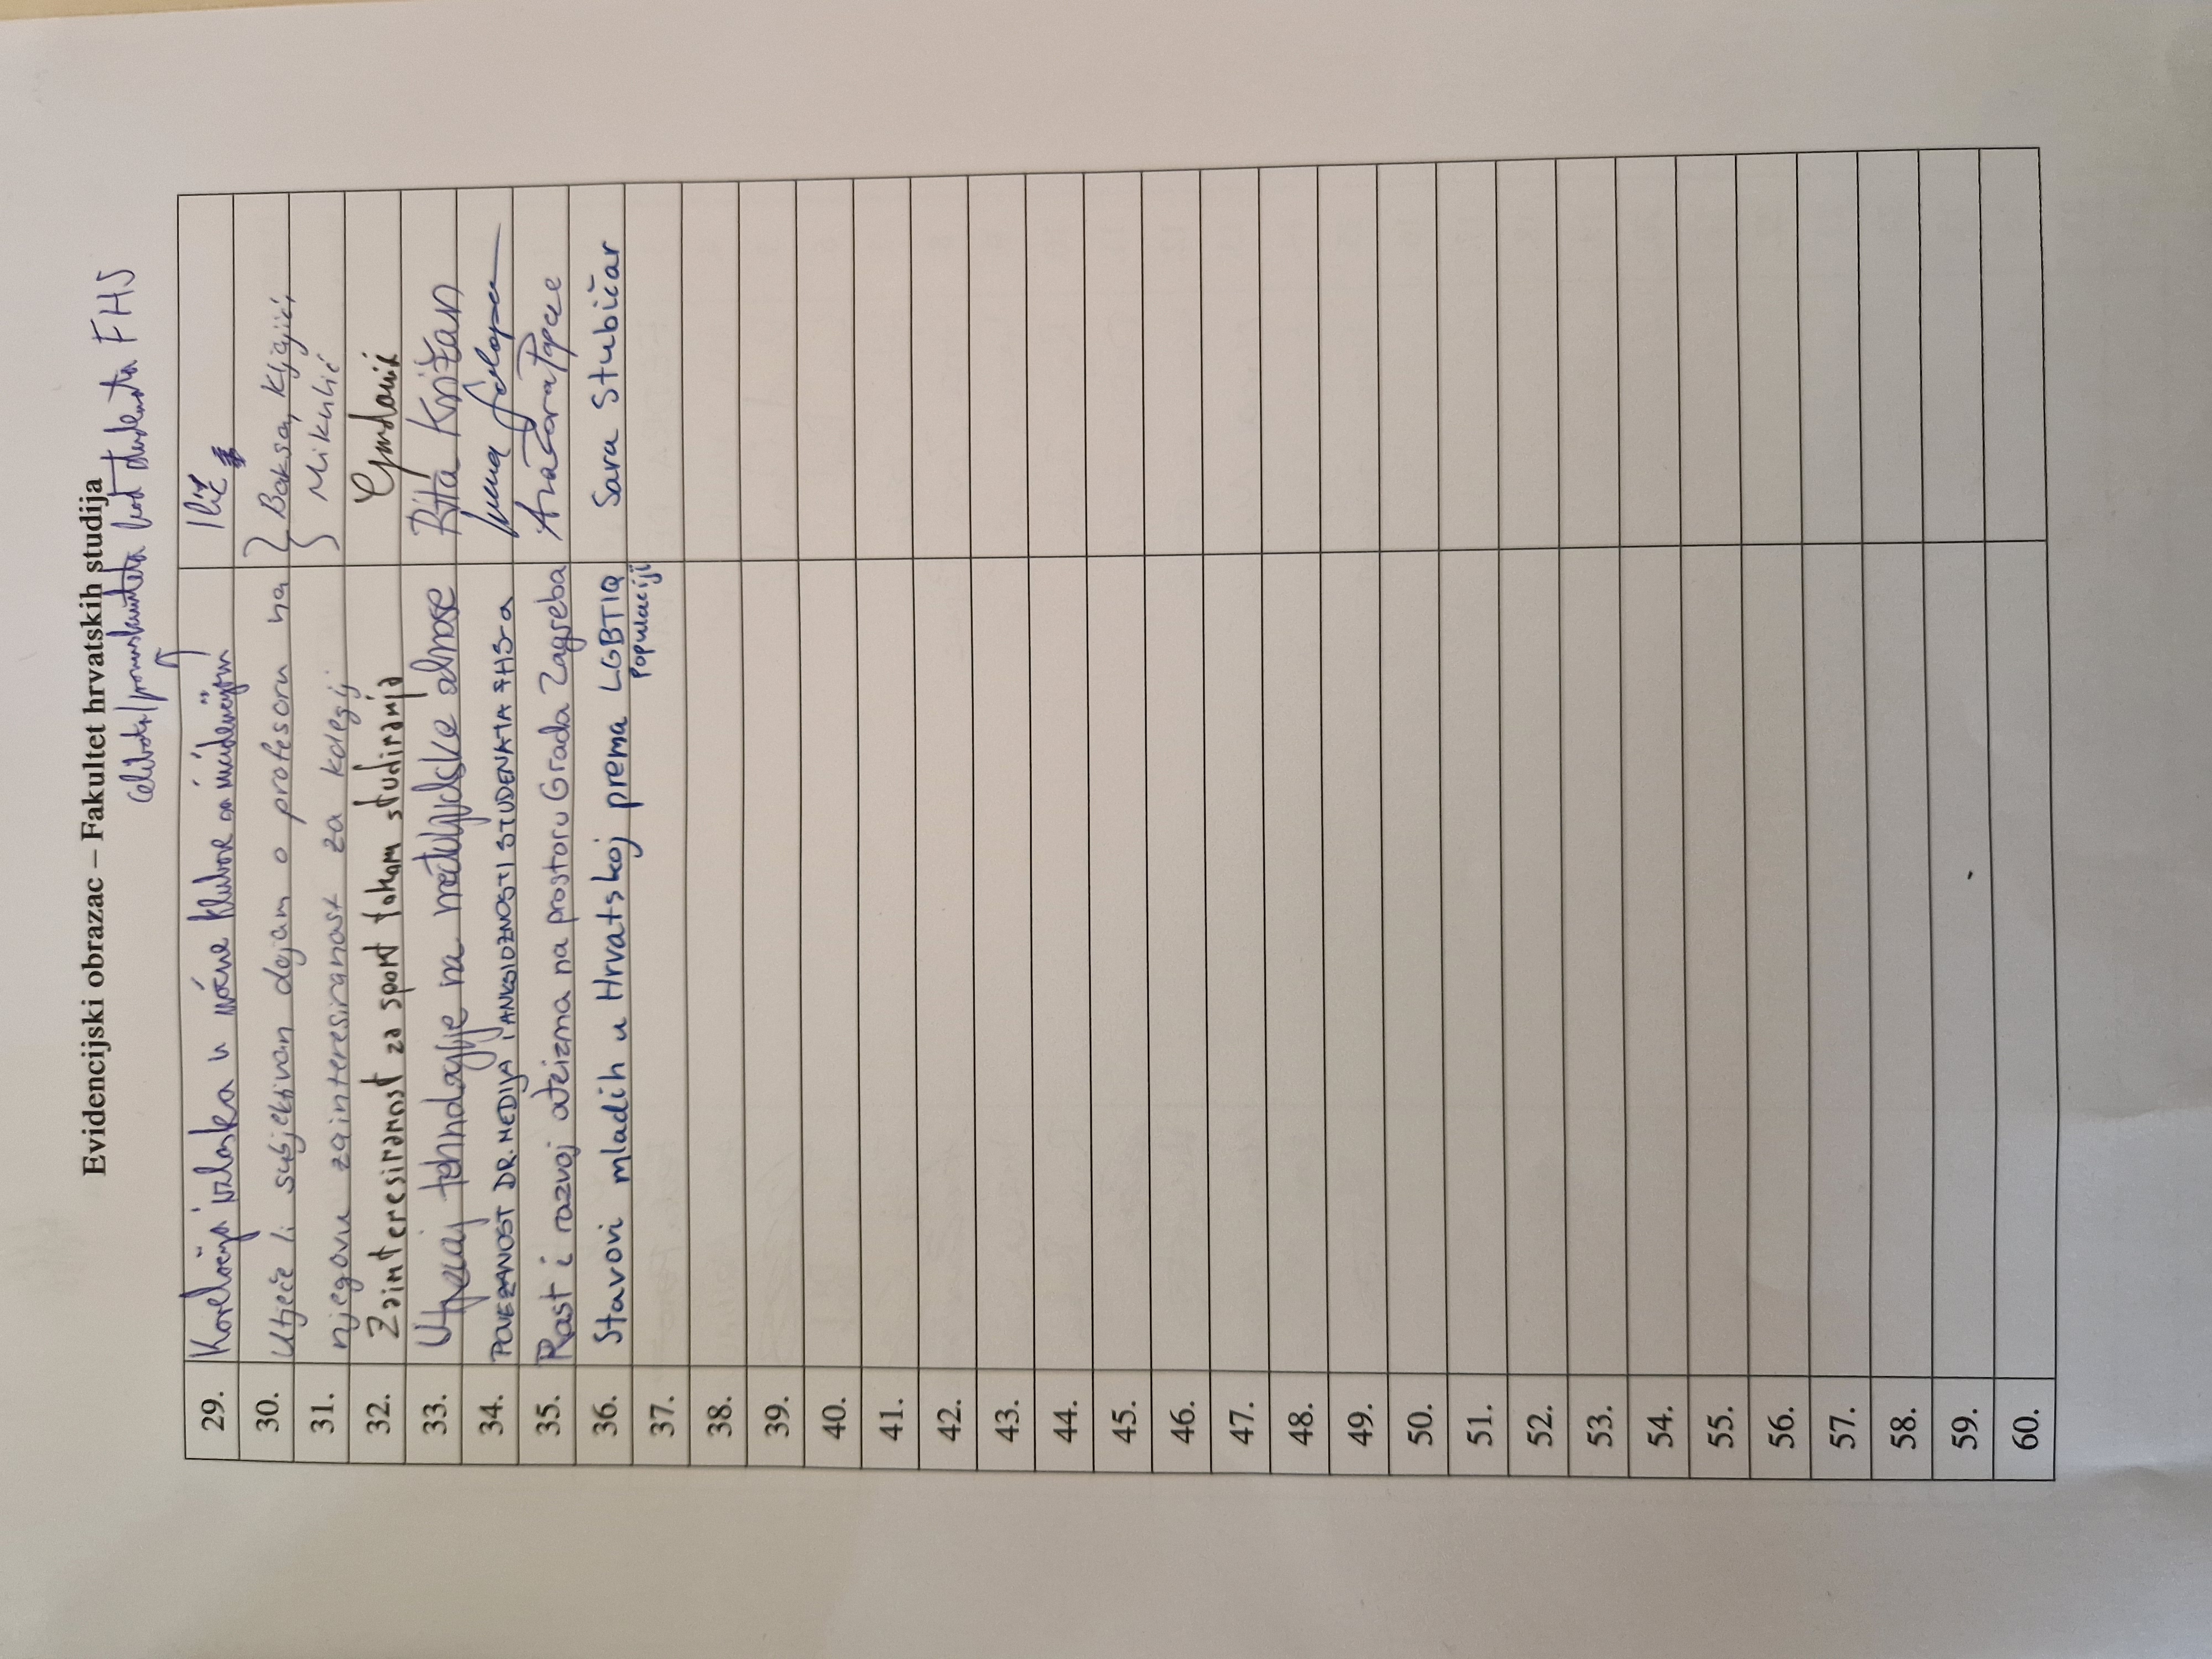 Evidencijski obrazac – Fakultet hrvatskih studija
celibata/promiskuiteta kod studenata FHS
29. Korelacija izlaska u noćne klubove sa incidencijom Ilić
30. Utječe li subjektivan dojam o profesoru na } Baksa, Kljajić,
31. njegovu zainteresiranost za kolegij Mikulić
32. Zainteresiranost za sport tokom studiranja
33. Utjecaj tehnologije na međuljudske odnose Rita Križan
34. POVEZANOST DR. MEDIJA I ANKSIOZNOSTI STUDENATA FHS-a
35. Rast i razvoj ateizma na prostoru Grada Zagreba
36. Stavovi mladih u Hrvatskoj prema LGBTIQ Sara Stubičar
populaciji
37.
38.
39.
40.
41.
42.
43.
44.
45.
46.
47.
48.
49.
50.
51.
52.
53.
54.
55.
56.
57.
58.
59.
60.